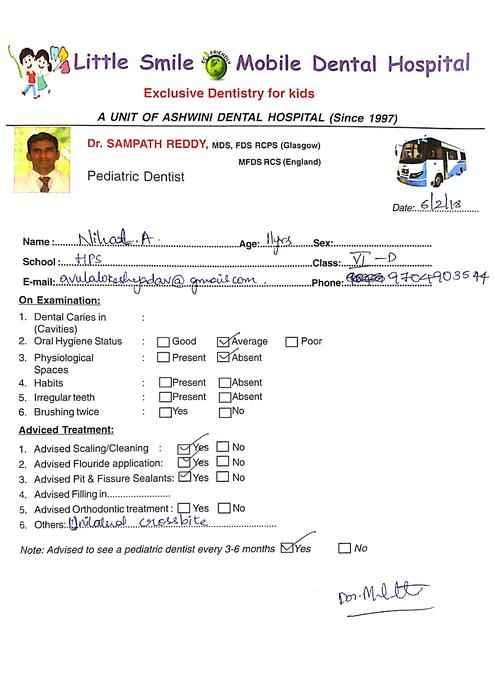 Little Smile ECO FRIENDLY Mobile Dental Hospital
Exclusive Dentistry for kids
A UNIT OF ASHWINI DENTAL HOSPITAL (Since 1997)
Dr. SAMPATH REDDY, MDS, FDS RCPS (Glasgow)
MFDS RCS (England)
Pediatric Dentist
Date: 6/2/18
Name: Nihal. A. Age: 11yrs Sex:
School: HPS Class: VI - D
E-mail: avulalokeshyadav@gmail.com. Phone: 9704903544
On Examination:
1. Dental Caries in :
(Cavities)
2. Oral Hygiene Status : Good Average Poor
3. Physiological : Present Absent
Spaces
4. Habits : Present Absent
5. Irregular teeth : Present Absent
6. Brushing twice : Yes No
Adviced Treatment:
1. Advised Scaling/Cleaning : Yes No
2. Advised Flouride application: Yes No
3. Advised Pit & Fissure Sealants: Yes No
4. Advised Filling in......................
5. Advised Orthodontic treatment : Yes No
6. Others: Unilateral crossbite
Note: Advised to see a pediatric dentist every 3-6 months Yes No